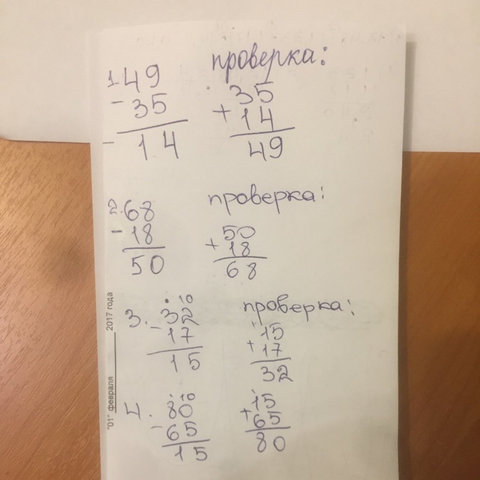 1. 49 проверка:
- 35 35
14 + 14
49
2. 68 проверка:
- 18 50
50 + 18
68
3. 32 проверка:
- 17 15
15 + 17
32
4. 80 15
- 65 + 65
15 80
"01" февраля 2017 года